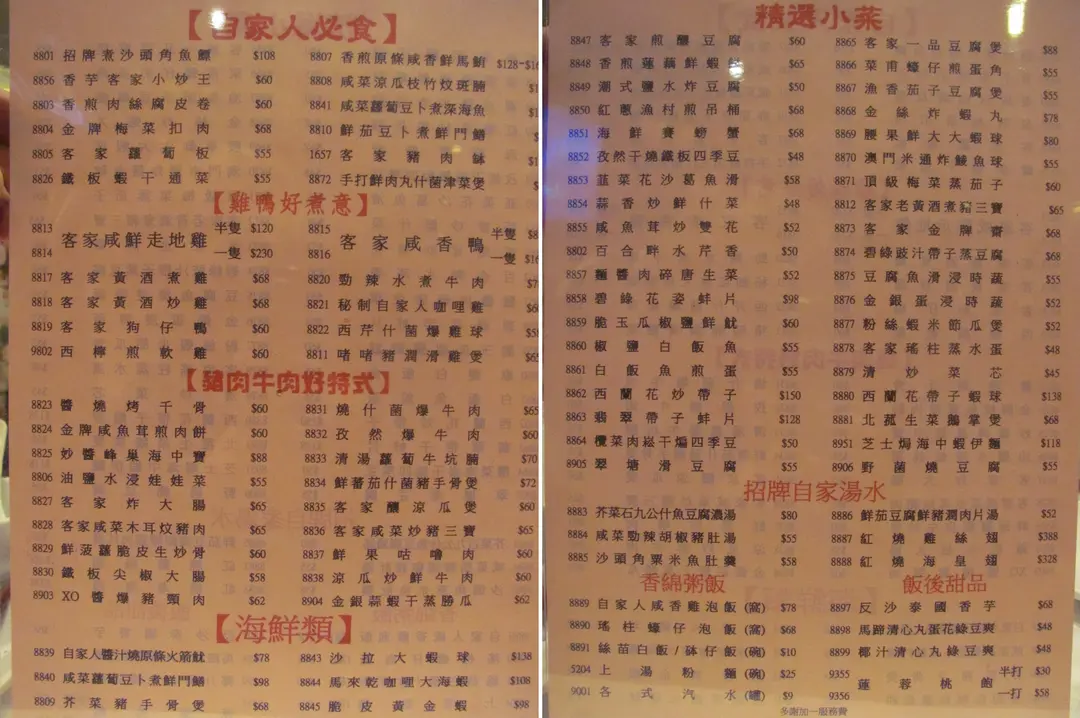 【自家人必食】
8801 招牌煮沙頭角魚鰾 $108
8856 香芋客家小炒王 $60
8803 香煎肉絲腐皮卷 $60
8804 金牌梅菜扣肉 $68
8805 客家蘿蔔板 $55
8826 鐵板蝦干通菜 $55
8807 香煎原條咸香鮮馬鮪 $128-$1
8808 咸菜涼瓜枝竹炆斑腩
8841 咸菜蘿蔔豆卜煮深海魚
8810 鮮茄豆卜煮鮮門鱔
1657 客家豬肉缽
8872 手打鮮肉丸什菌津菜煲
【雞鴨好煮意】
8813 半隻 $120
客家咸鮮走地雞
8814 一隻 $230
8815 半隻
客家咸香鴨
8816 一隻
8817 客家黃酒煮雞 $68
8818 客家黃酒炒雞 $68
8819 客家狗仔鴨 $60
9802 西檸煎軟雞 $60
8820 勁辣水煮牛肉
8821 秘制自家人咖哩雞
8822 西芹什菌爆雞球
8811 啫啫豬潤滑雞煲
【豬肉牛肉好特式】
8823 醬燒烤千骨 $60
8824 金牌咸魚茸煎肉餅 $60
8825 妙醬蜂巢海中寶 $88
8806 油鹽水浸娃娃菜 $55
8827 客家炸大腸 $65
8828 客家咸菜木耳炆豬肉 $65
8829 鮮菠蘿脆皮生炒骨 $60
8830 鐵板尖椒大腸 $58
8903 XO醬爆豬頸肉 $62
8831 燒什菌爆牛肉 $65
8832 孜然爆牛肉 $60
8833 清湯蘿蔔牛坑腩 $70
8834 鮮蕃茄什菌豬手骨煲 $72
8835 客家釀涼瓜煲 $60
8836 客家咸菜炒豬三寶 $65
8837 鮮果咕嚕肉 $60
8838 涼瓜炒鮮牛肉 $60
8904 金銀蒜蝦干蒸勝瓜 $62
【海鮮類】
8839 自家人醬汁燒原條火箭魷 $78
8840 咸菜蘿蔔豆卜煮鮮門鱔 $98
8809 芥菜豬手骨煲 $68
8843 沙拉大蝦球 $138
8844 馬來乾咖哩大海蝦 $108
8845 脆皮黃金蝦 $98
精選小菜
8847 客家煎釀豆腐 $60
8848 香煎蓮藕鮮蝦餅 $65
8849 潮式鹽水炸豆腐 $50
8850 紅蔥漁村煎吊桶 $68
8851 海鮮賽螃蟹 $68
8852 孜然干燒鐵板四季豆 $48
8853 韮菜花沙葛魚滑 $58
8854 蒜香炒鮮什菜 $48
8855 咸魚茸炒雙花 $52
8802 百合畔水芹香 $50
8857 麵醬肉碎唐生菜 $52
8858 碧綠花姿蚌片 $98
8859 脆玉瓜椒鹽鮮魷 $60
8860 椒鹽白飯魚 $55
8861 白飯魚煎蛋 $55
8862 西蘭花炒帶子 $150
8863 翡翠帶子蚌片 $128
8864 欖菜肉崧干煸四季豆 $50
8905 翠塘滑豆腐 $55
8865 客家一品豆腐煲 $88
8866 菜甫蠔仔煎蛋角 $55
8867 漁香茄子豆腐煲 $55
8868 金絲炸蝦丸 $78
8869 腰果鮮大大蝦球 $80
8870 澳門米通炸鯪魚球 $55
8871 頂級梅菜蒸茄子 $60
8812 客家老黃酒煮豬三寶 $65
8873 客家金牌齋 $68
8874 碧綠豉汁帶子蒸豆腐 $68
8875 豆腐魚滑浸時蔬 $55
8876 金銀蛋浸時蔬 $52
8877 粉絲蝦米節瓜煲 $52
8878 客家瑤柱蒸水蛋 $48
8879 清炒菜芯 $45
8880 西蘭花帶子蝦球 $138
8881 北菰生菜鵝掌煲 $68
8951 芝士焗海中蝦伊麵 $118
8906 野菌燒豆腐 $55
招牌自家湯水
8883 芥菜石九公什魚豆腐濃湯 $80
8884 咸菜勁辣胡椒豬肚湯 $55
8885 沙頭角粟米魚肚羹 $58
8886 鮮茄豆腐鮮豬潤肉片湯 $52
8887 紅燒雞絲翅 $388
8888 紅燒海皇翅 $328
香綿粥飯
8889 自家人咸香雞泡飯(窩) $78
8890 瑤柱蠔仔泡飯(窩) $68
8891 絲苗白飯/缽仔飯(碗) $10
5204 上湯粉麵(碗) $25
9001 各式汽水(罐) $9
飯後甜品
8897 反沙泰國香芋 $68
8898 馬蹄清心丸蛋花綠豆爽 $48
8899 椰汁清心丸綠豆爽 $48
9355 半打 $30
蓮蓉桃飽
9356 一打 $58
多謝加一服務費